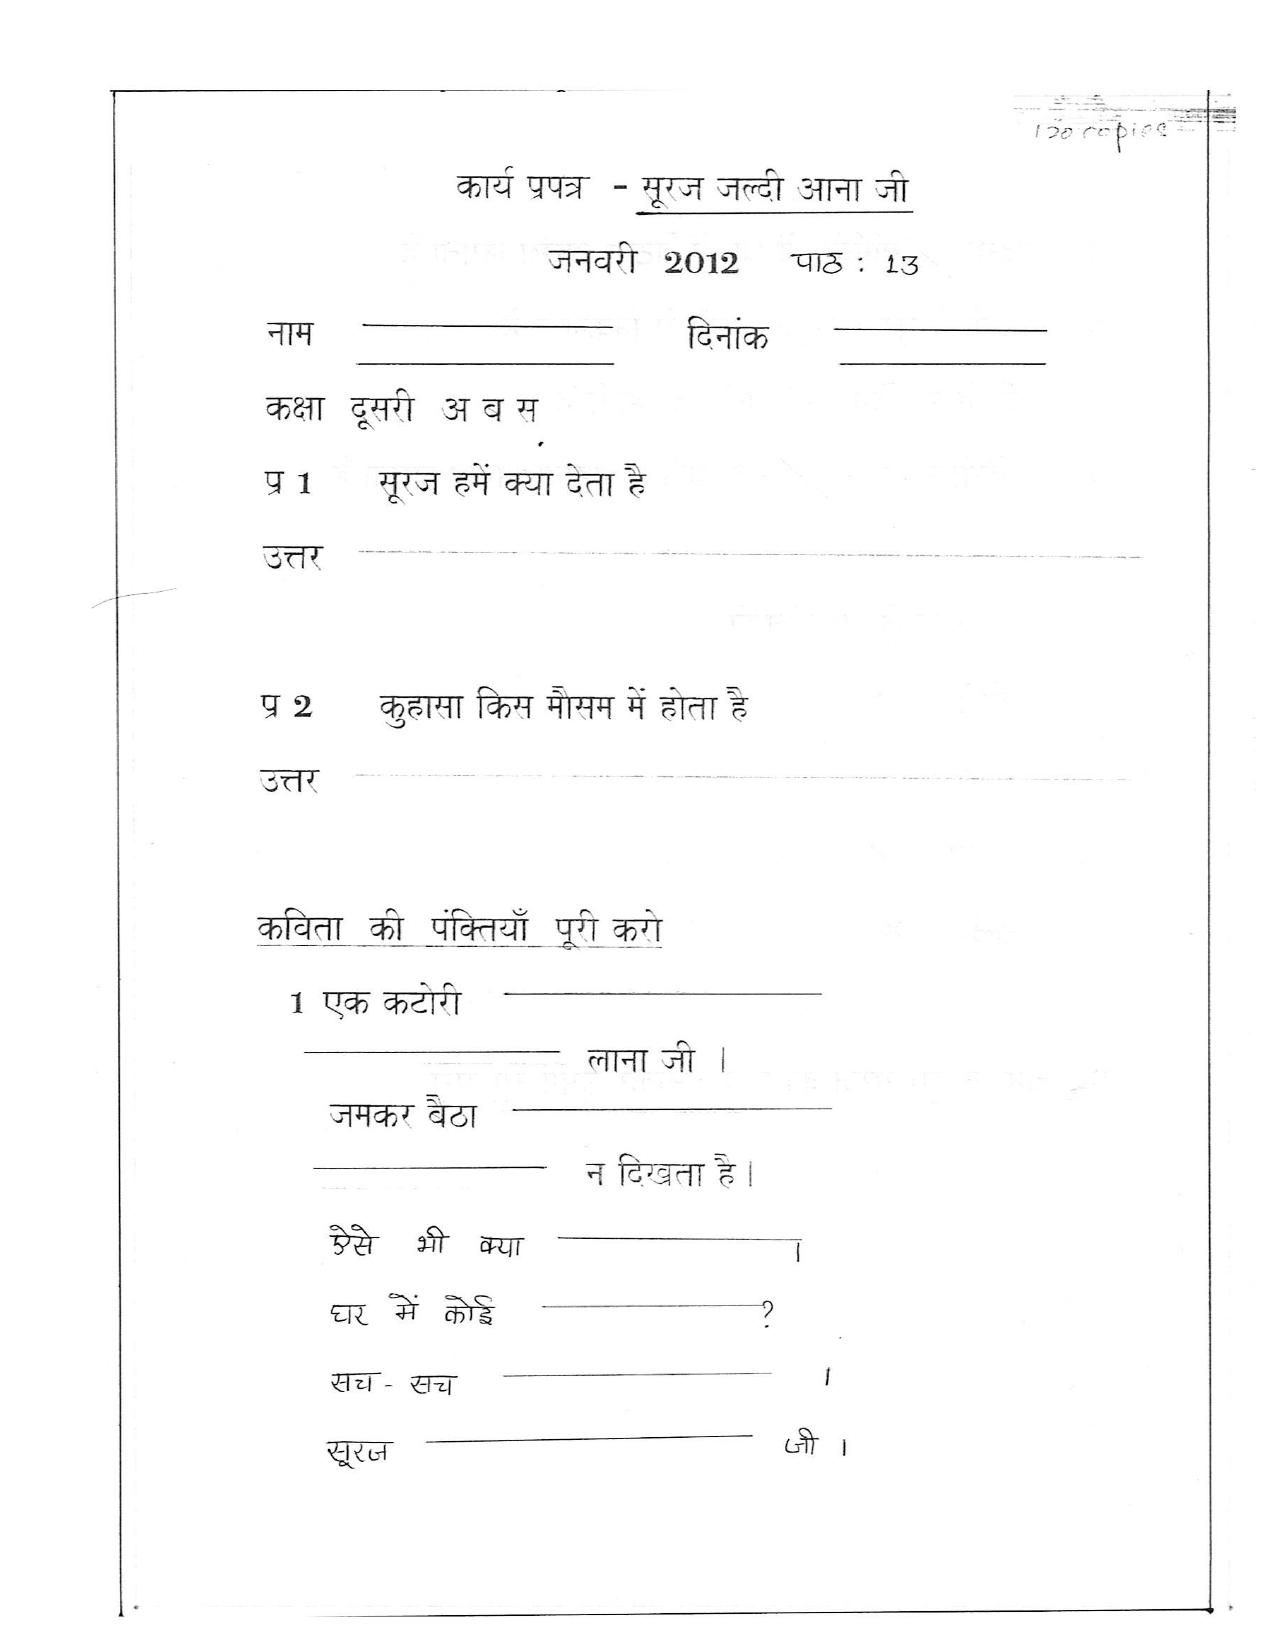 120 copies
कार्य प्रपत्र - सूरज जल्दी आना जी
जनवरी 2012 पाठ : 13
नाम दिनांक
कक्षा दूसरी अ ब स
प्र 1 सूरज हमें क्या देता है
उत्तर
प्र 2 कुहासा किस मौसम में होता है
उत्तर
कविता की पंक्तियाँ पूरी करो
1 एक कटोरी
लाना जी ।
जमकर बैठा
न दिखता है।
ऐसे भी क्या ।
घर में कोई ?
सच - सच ।
सूरज जी ।